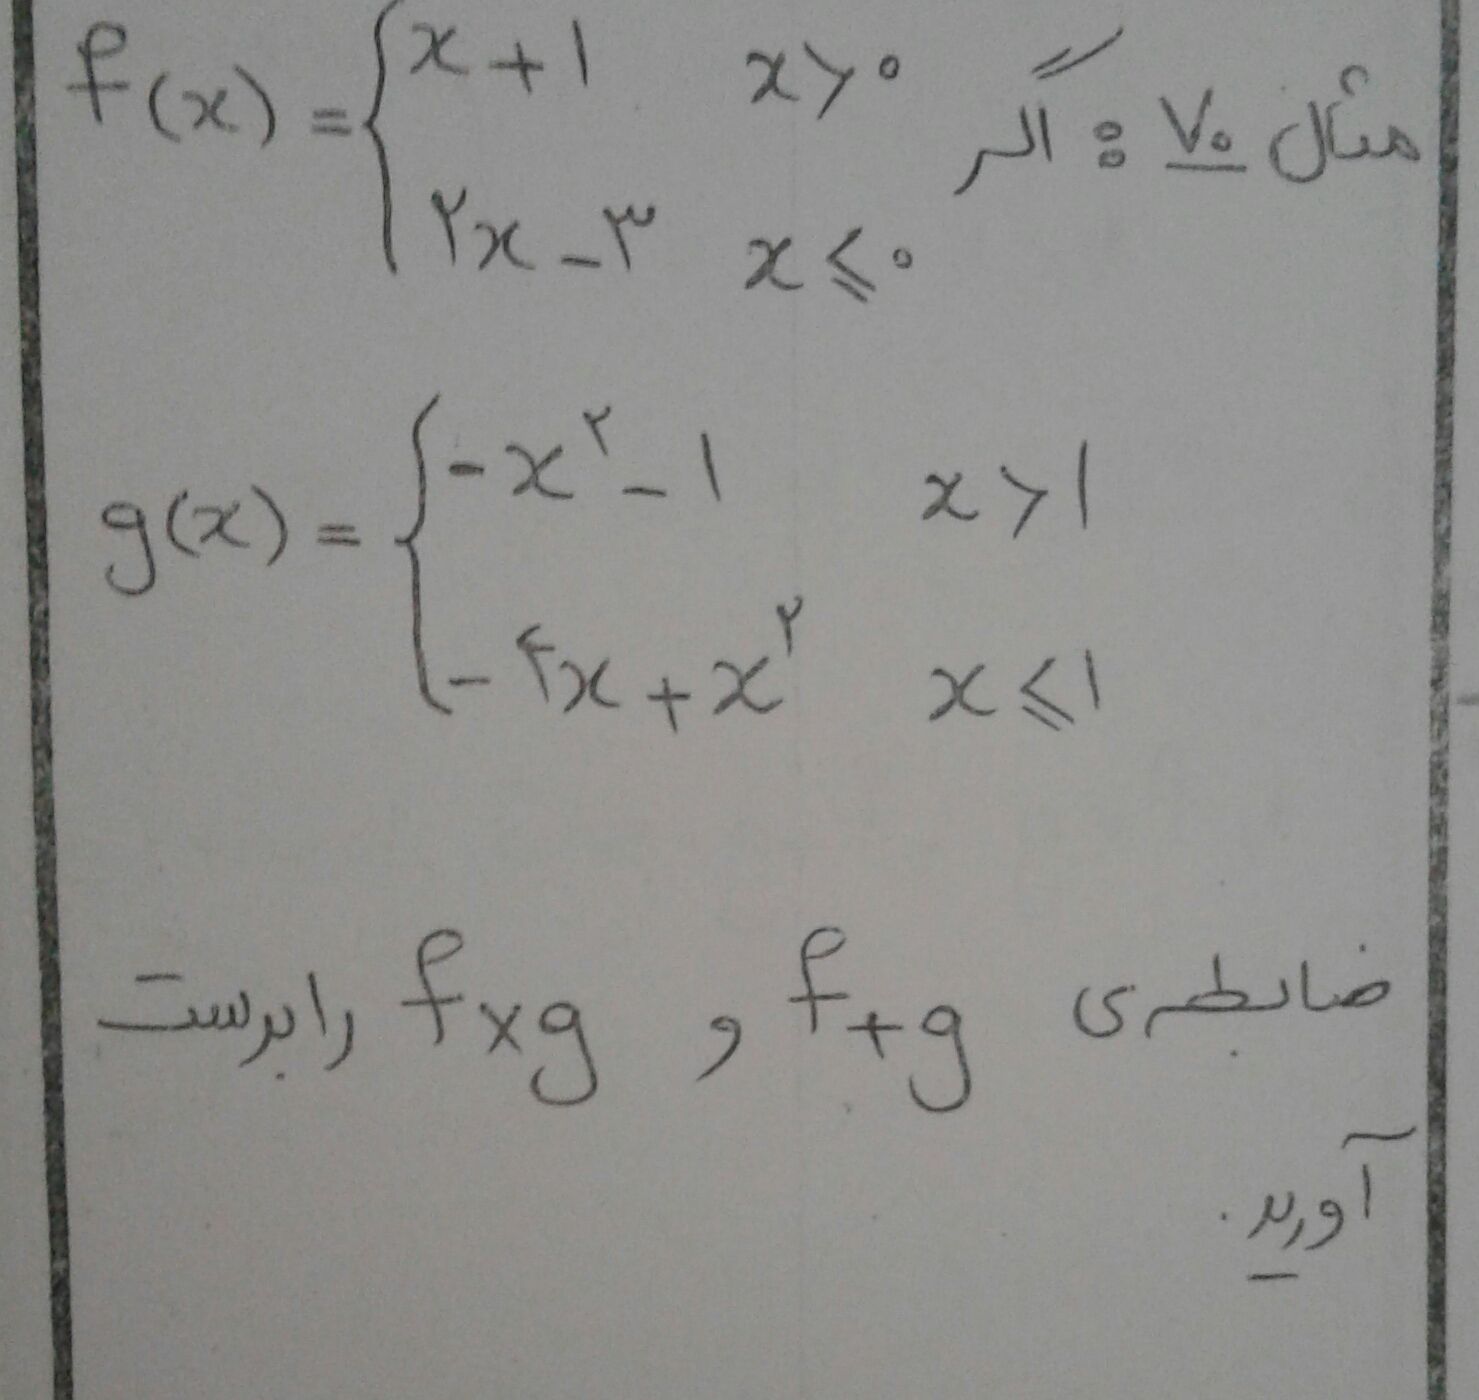 مثال ۷۰ : اگر f(x) = { x + ۱ x > ۰
۲x - ۳ x ⩽ ۰
g(x) = { -x^۲ - ۱ x > ۱
-۴x + x^۲ x ⩽ ۱
ضابطه‌ی f+g و f×g را بدست
آورید.